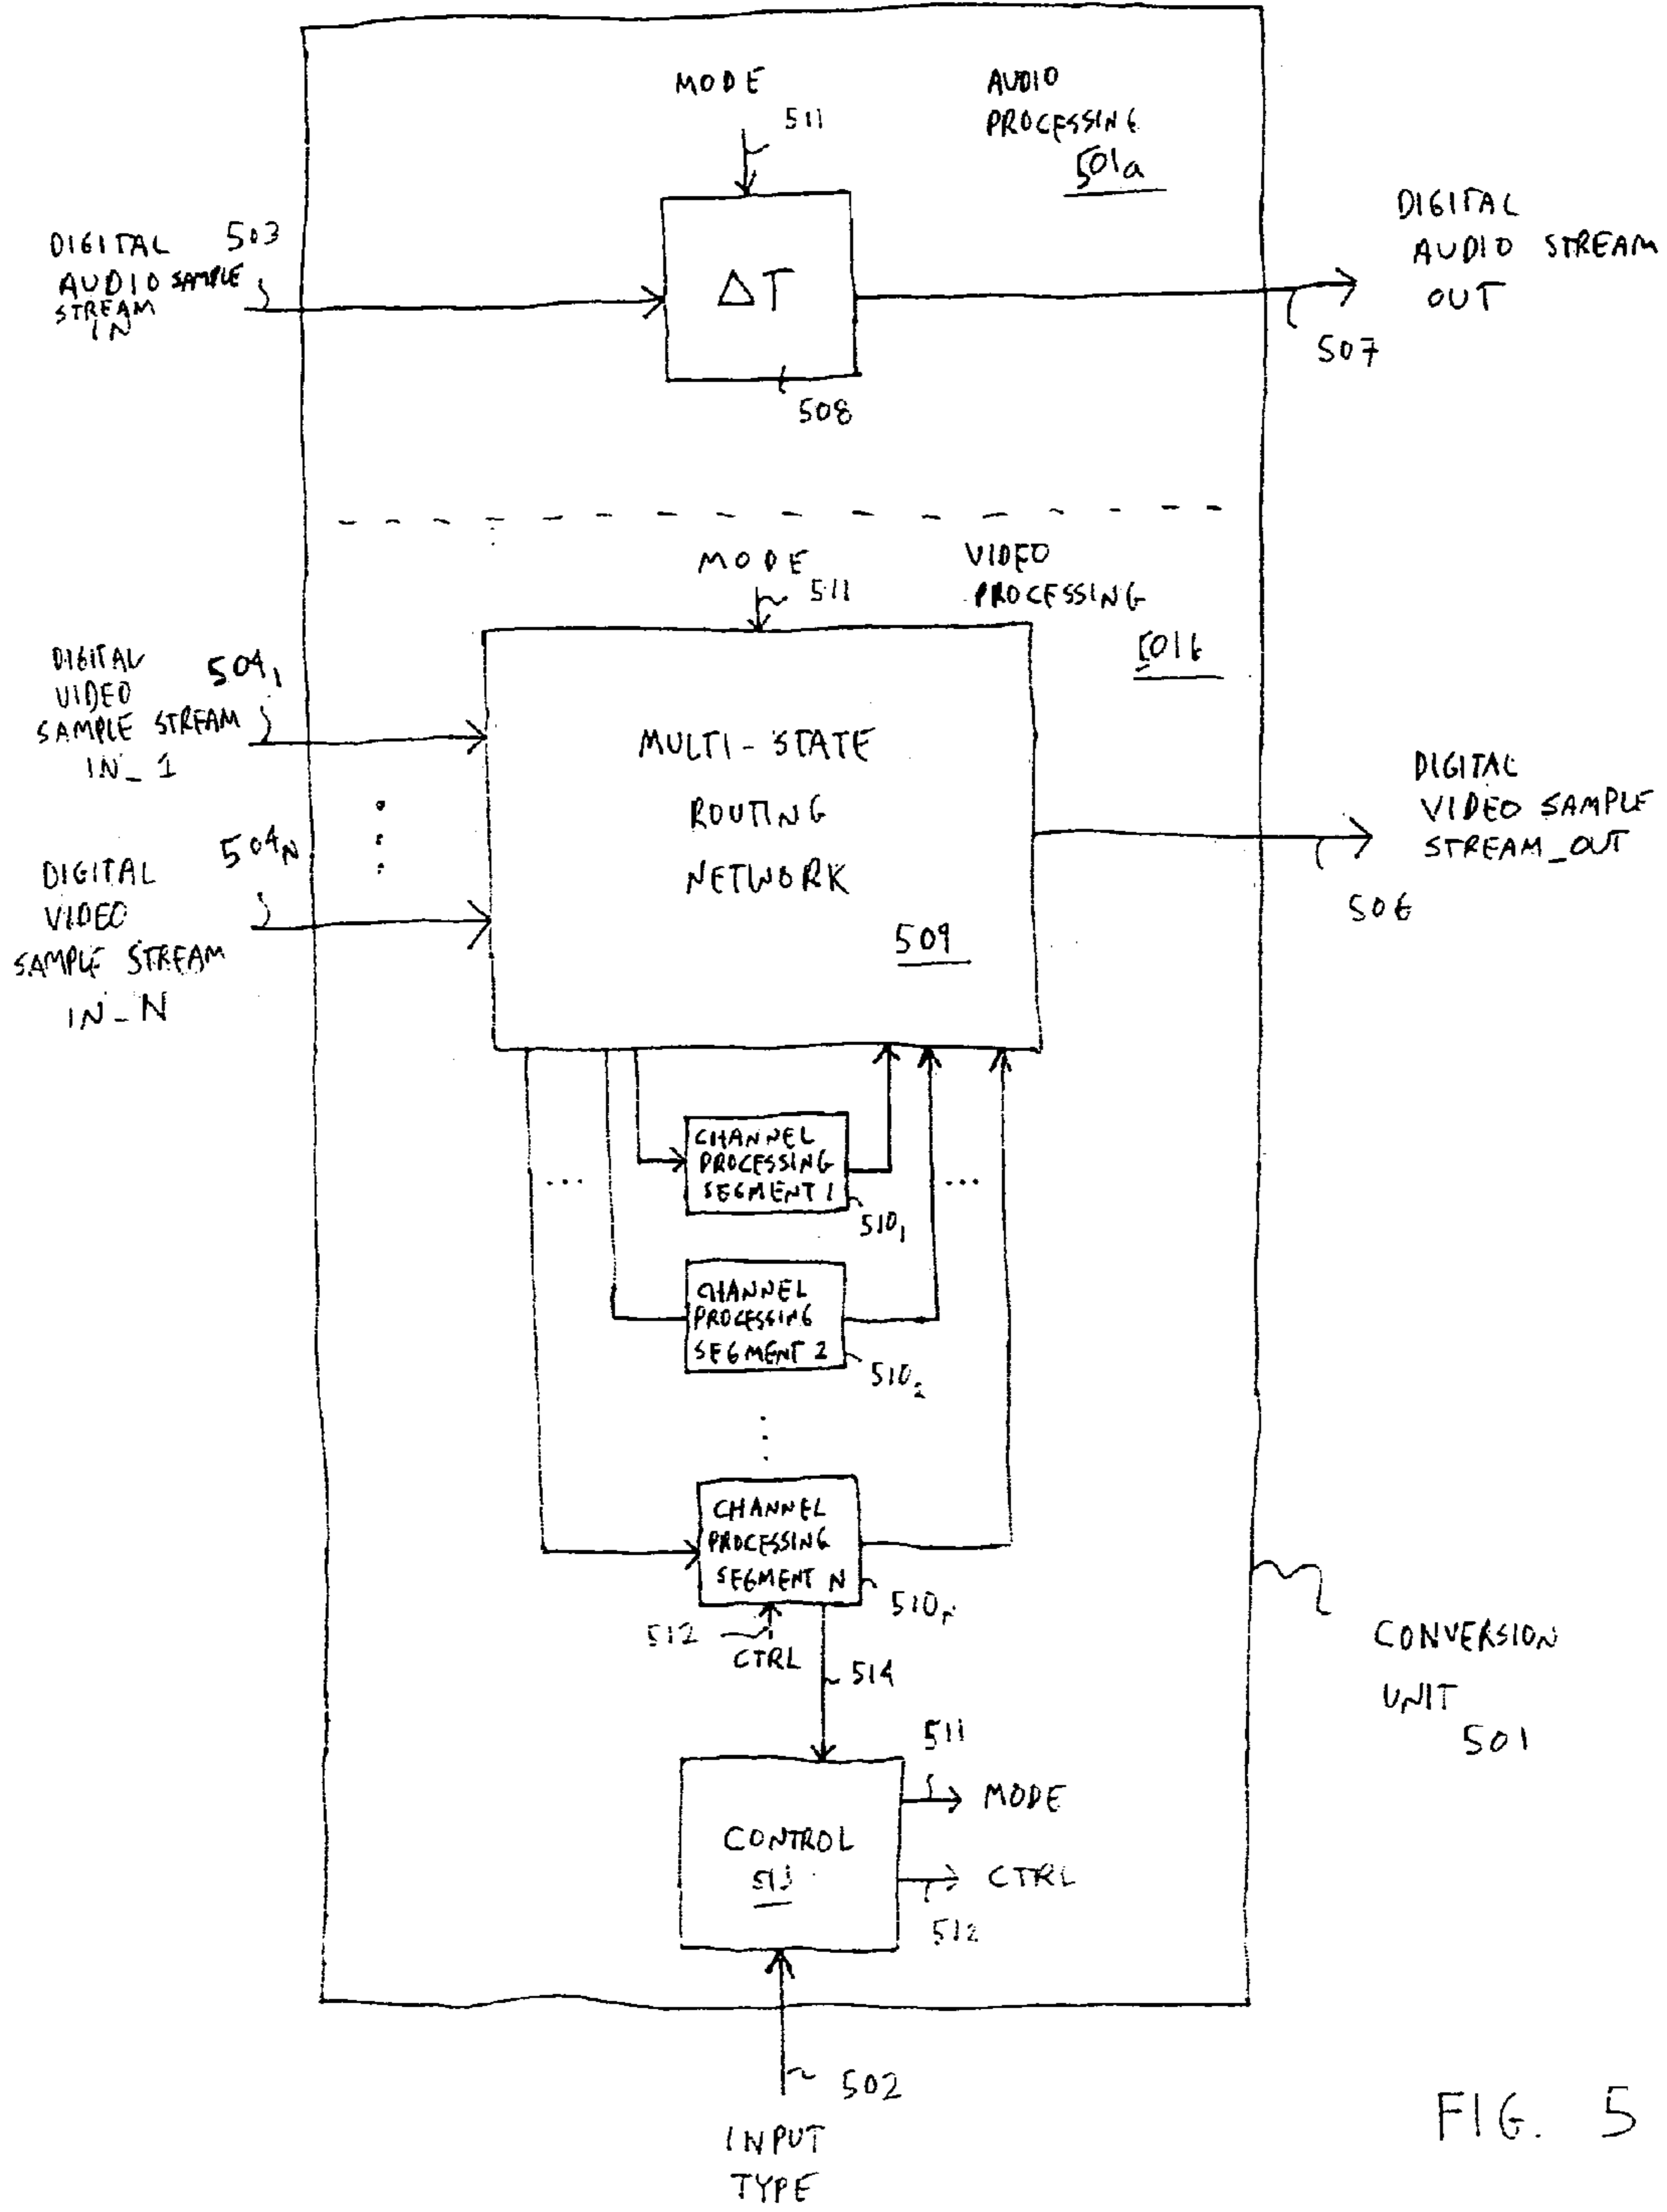 MODE
511
AUDIO
PROCESSING
501a
DIGITAL 503
AUDIO SAMPLE
STREAM
IN
ΔT
508
DIGITAL
AUDIO STREAM
OUT
507
MODE
511
VIDEO
PROCESSING
501b
DIGITAL
VIDEO
SAMPLE STREAM
IN_1
504₁
DIGITAL
VIDEO
SAMPLE STREAM
IN_N
504N
MULTI-STATE
ROUTING
NETWORK
509
DIGITAL
VIDEO SAMPLE
STREAM_OUT
506
CHANNEL
PROCESSING
SEGMENT 1
510₁
...
...
CHANNEL
PROCESSING
SEGMENT 2
510₂
CHANNEL
PROCESSING
SEGMENT N
510N
512
CTRL
514
CONTROL
513
511
MODE
CTRL
512
CONVERSION
UNIT
501
502
INPUT
TYPE
FIG. 5